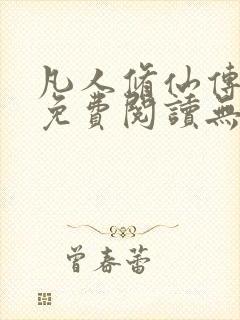 凡人脩仙傳
免費閱讀無
曾春蕾